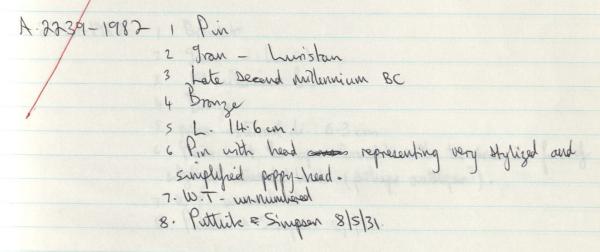 A.2239-1982 1 Pin
2 Iran - Luristan
3 Late Second millennium BC
4 Bronze
5 L. 14.6 cm.
6 Pin with head representing very stylized and
simplified poppy-head.
7. W.T - unnumbered
8. Puttick & Simpson 8/5/31.